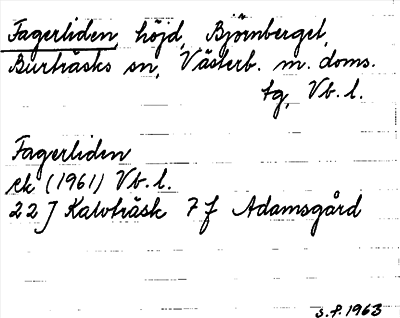 Fagerliden, höjd, Björnberget,
Burträsks sn, Västerb. m. doms.
tg, Vb. l.
Fagerliden
ek (1961) Vb. l.
22 J Kalvträsk 7 f Adamsgård
S. P. 1963